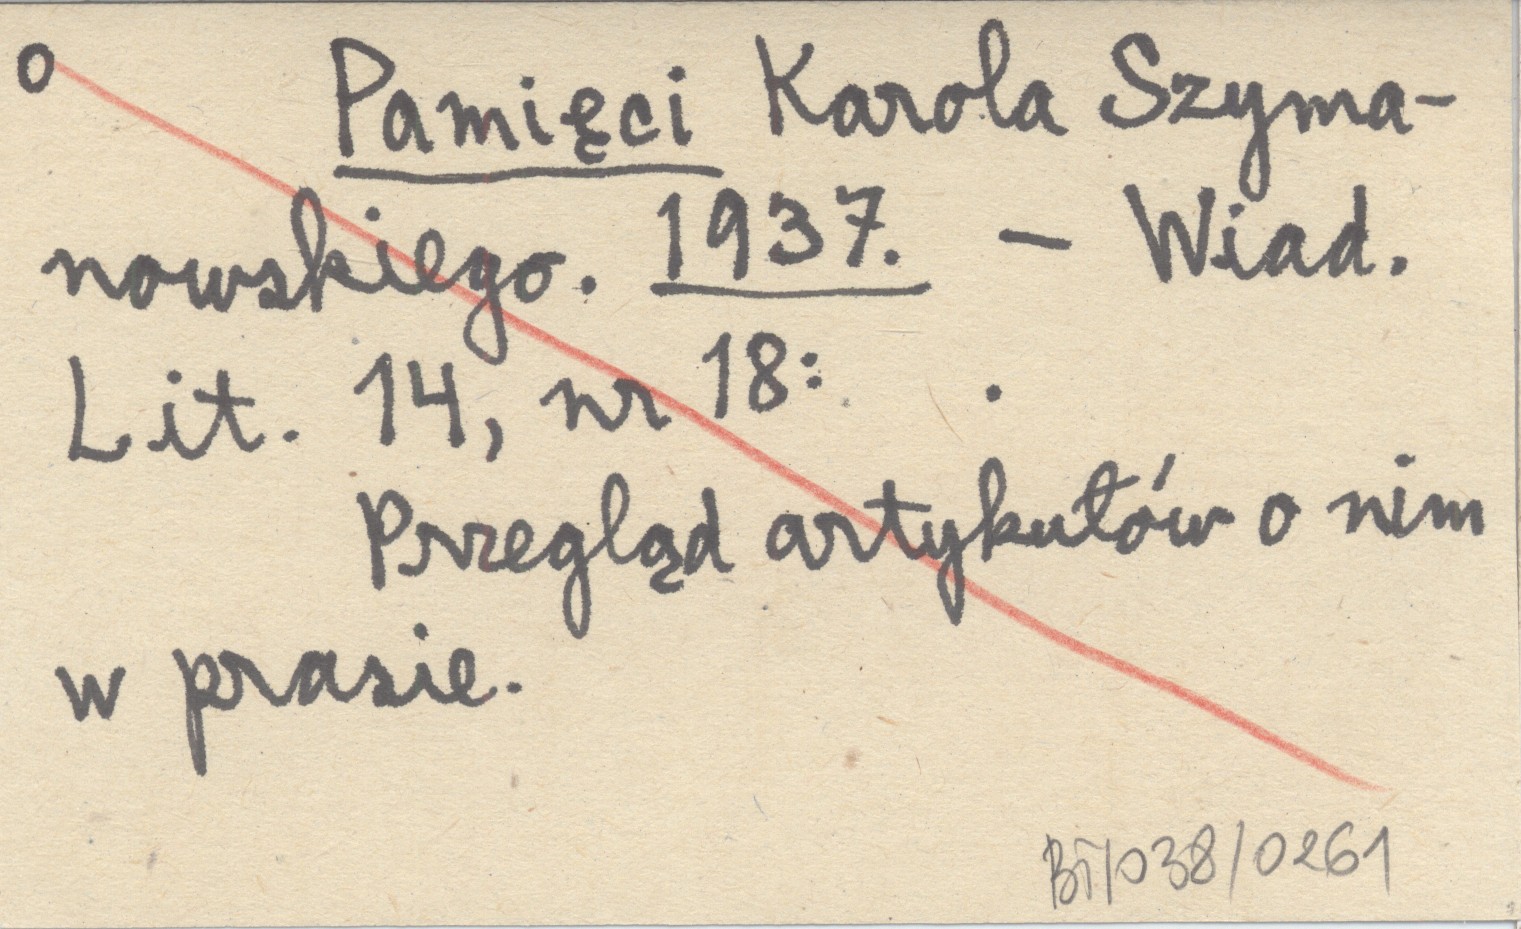 o Pamięci Karola Szyma-
nowskiego. 1937. – Wiad.
Lit. 14, nr 18: .
Przegląd artykułów o nim
w prasie.
BŁ/038/0261